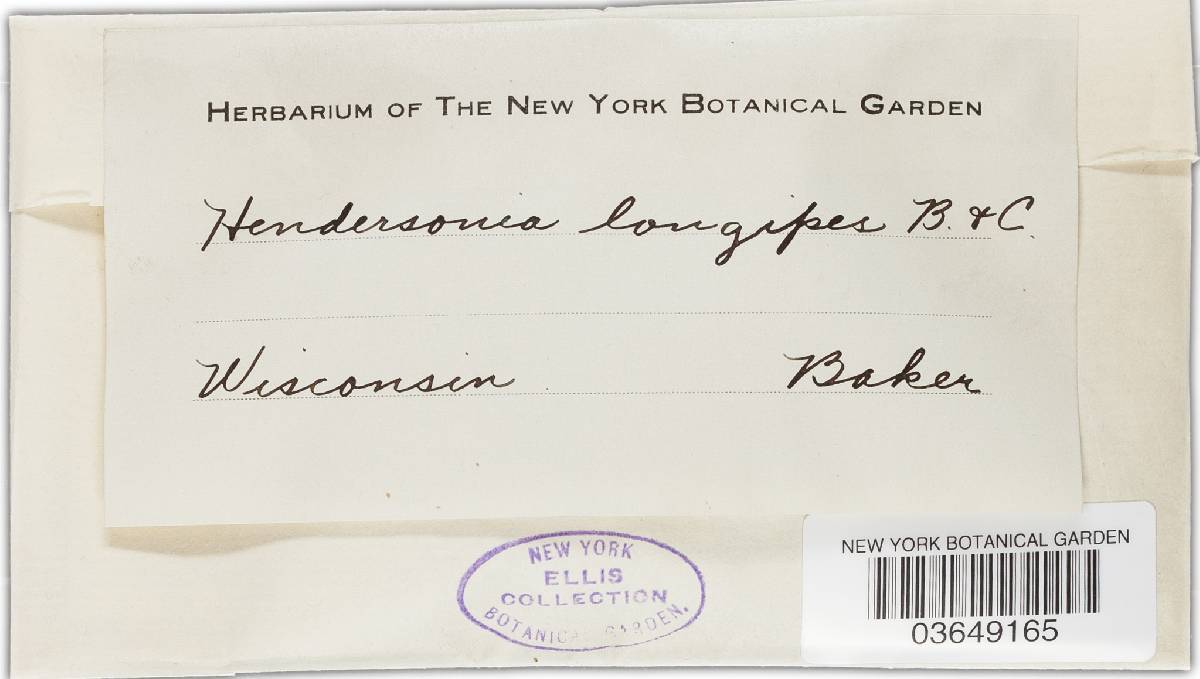 HERBARIUM OF THE NEW YORK BOTANICAL GARDEN
Hendersonia longipes B. & C.
Wisconsin Baker
NEW YORK
ELLIS
COLLECTION
BOTANICAL GARDEN.
NEW YORK BOTANICAL GARDEN
03649165